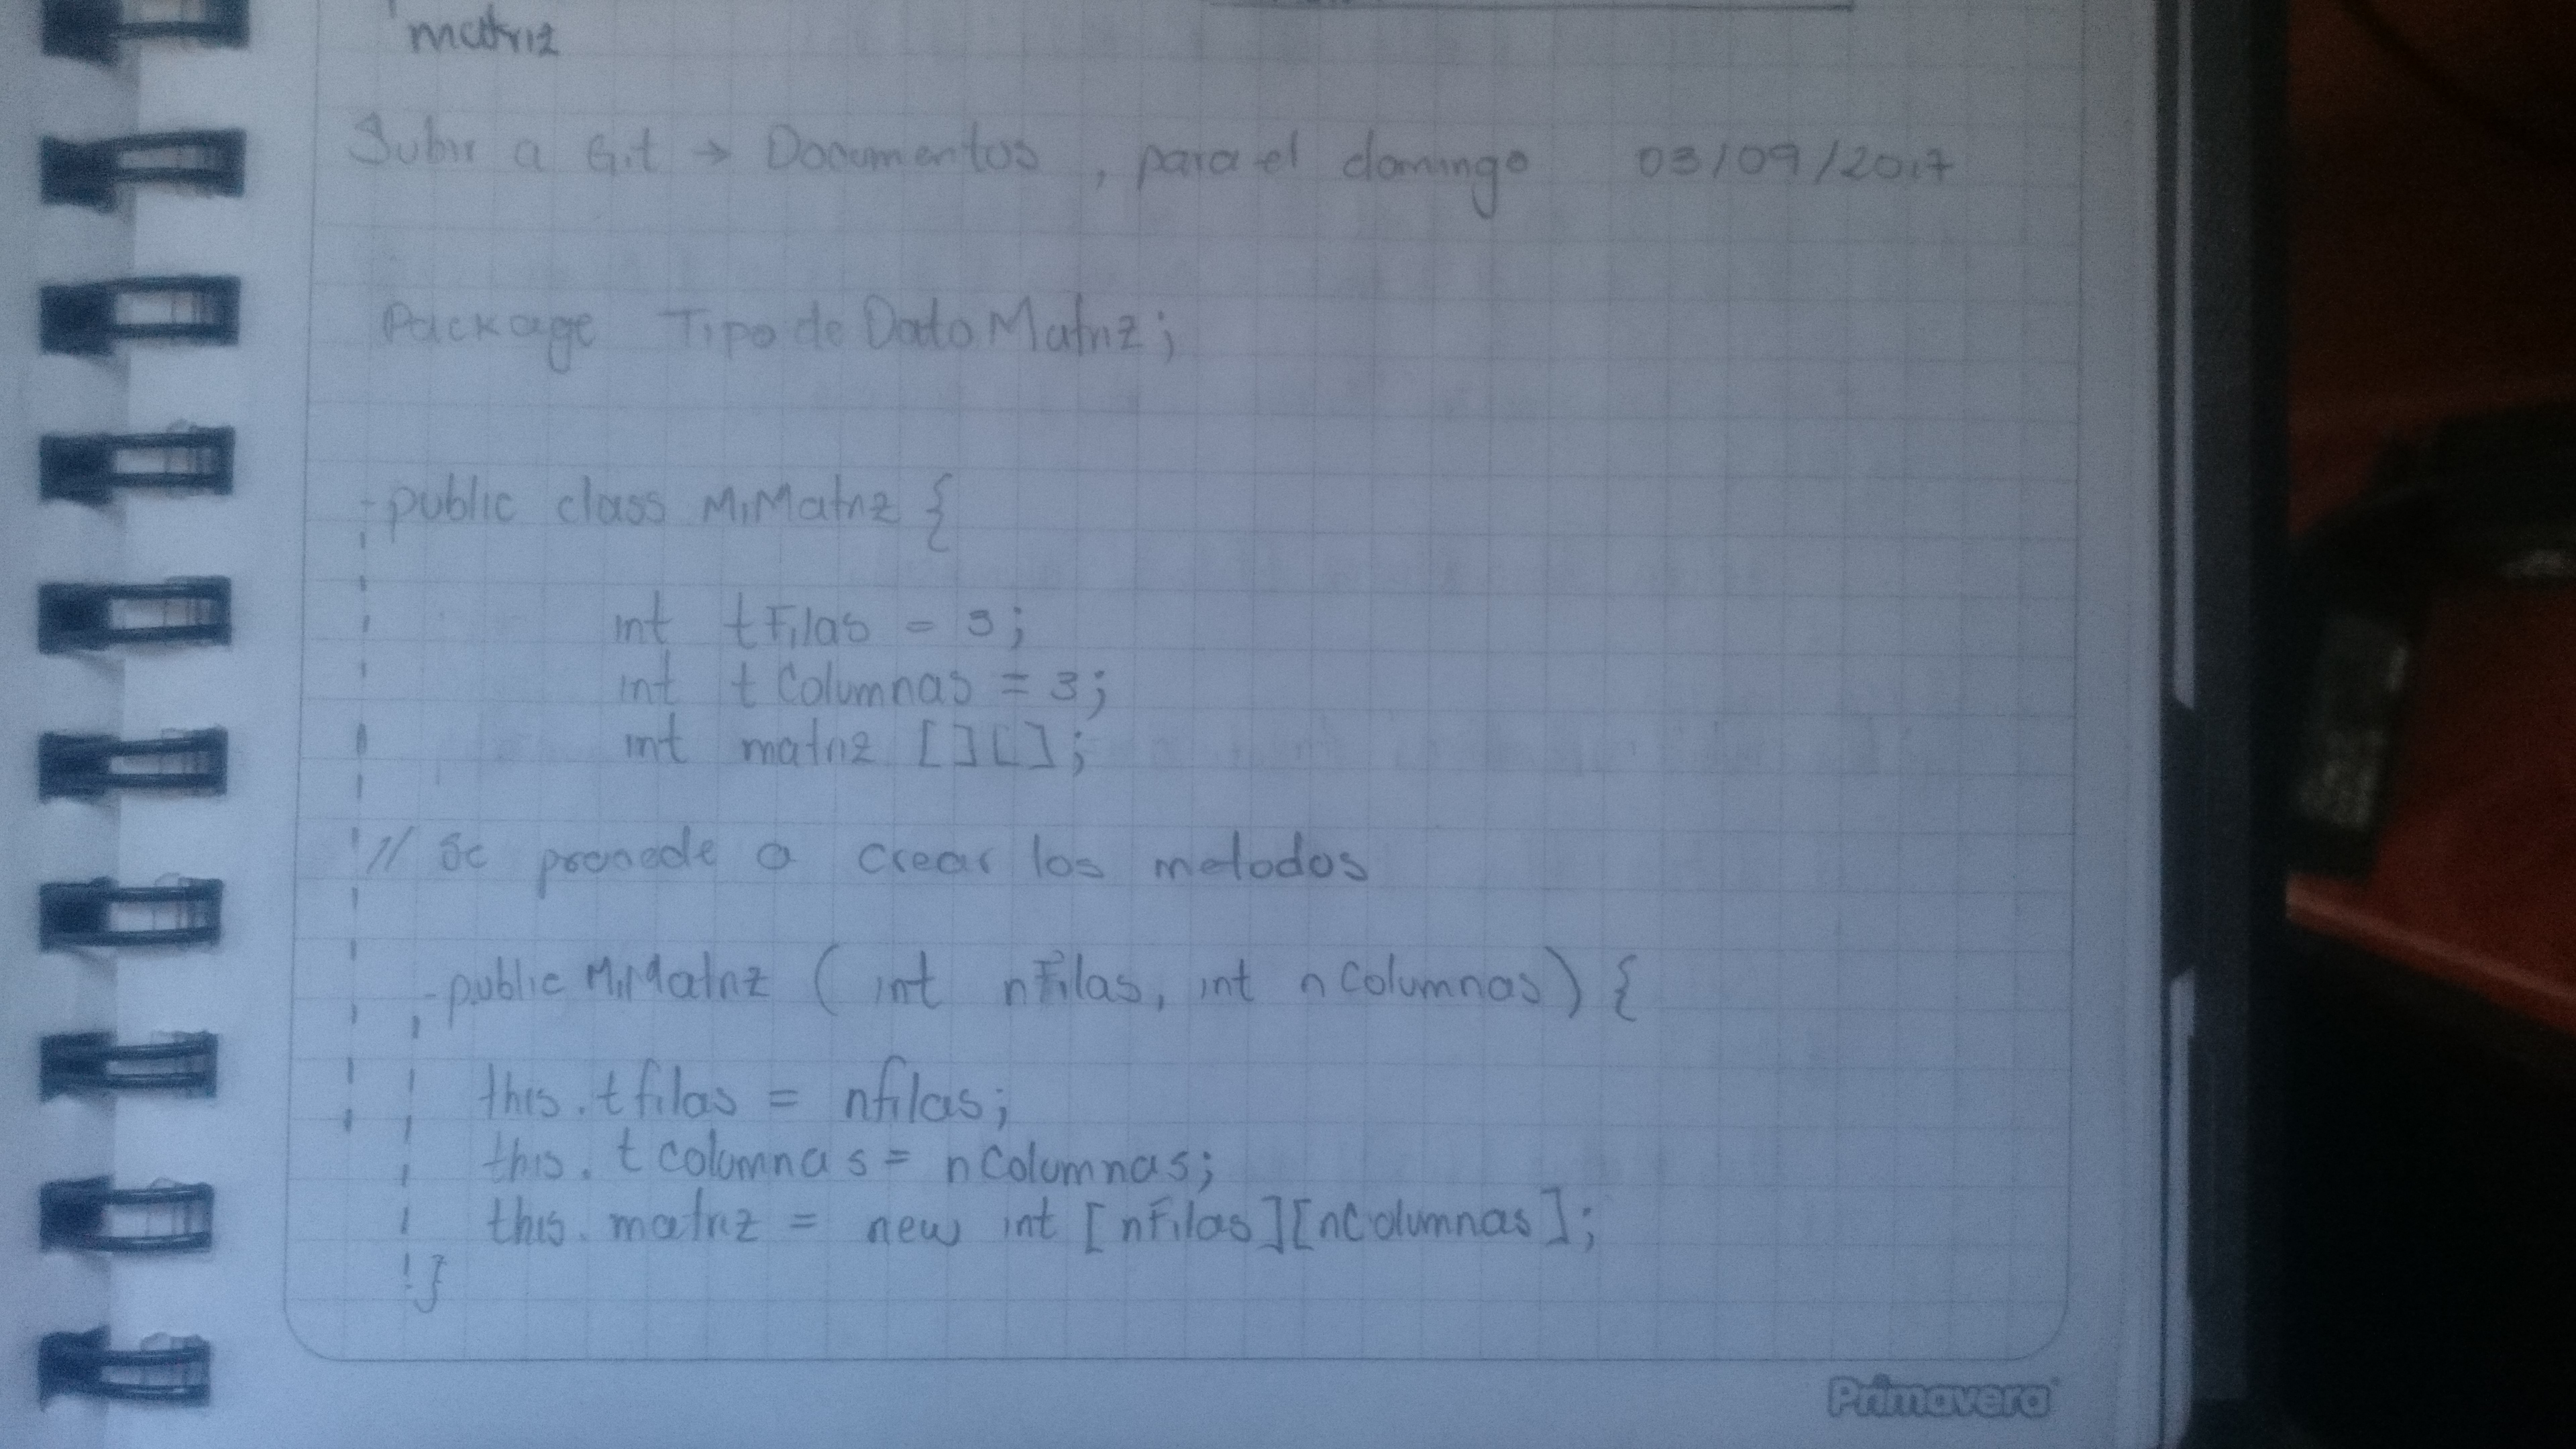 matriz
Subir a Git → Documentos, para el domingo 03/09/2017
Package TipodeDatoMatriz;
public class MiMatriz {
int tFilas = 3;
int tColumnas = 3;
int matriz [][];
// Se procede a crear los metodos
public MiMatriz (int nFilas, int nColumnas) {
this.tfilas = nfilas;
this.tcolumnas = nColumnas;
this.matriz = new int [nFilas][nColumnas];
}
Primavera